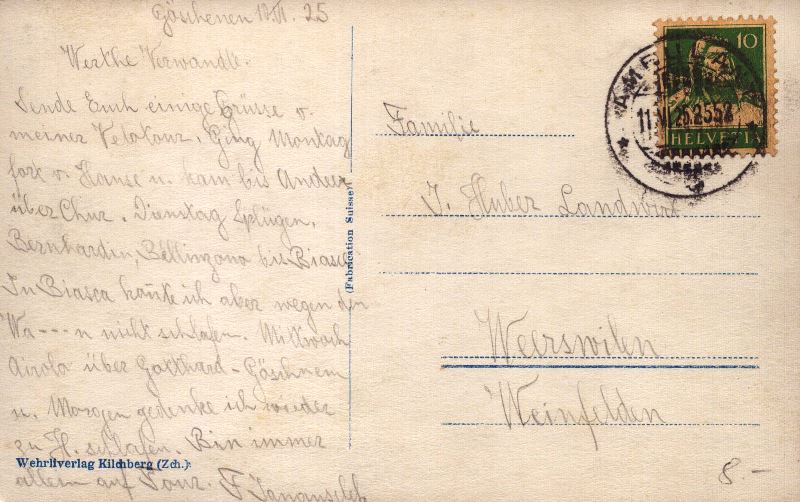 Göschenen 10.VI. 25
Werthe Verwandte.
Sende Euch einige Grüsse v.
meiner Velotour. Ging Montag
fort v. Hause u. kam bis Andeer
über Chur. Dienstag Splügen,
Bernhardin, Bellinzona bis Biasca
In Biasca konnte ich aber wegen den
Wa---n nicht schlafen. Mittwoch
Airolo über Gotthard-Göschenen
u. Morgen gedenke ich wieder
zu H. schlafen. Bin immer
allein auf Tour. F.
Wehrliverlag Kilchberg (Zch.)
(Fabrication Suisse)
Familie
J. Huber Landwirt
Weerswilen
Weinfelden
10
HELVETIA
8.-